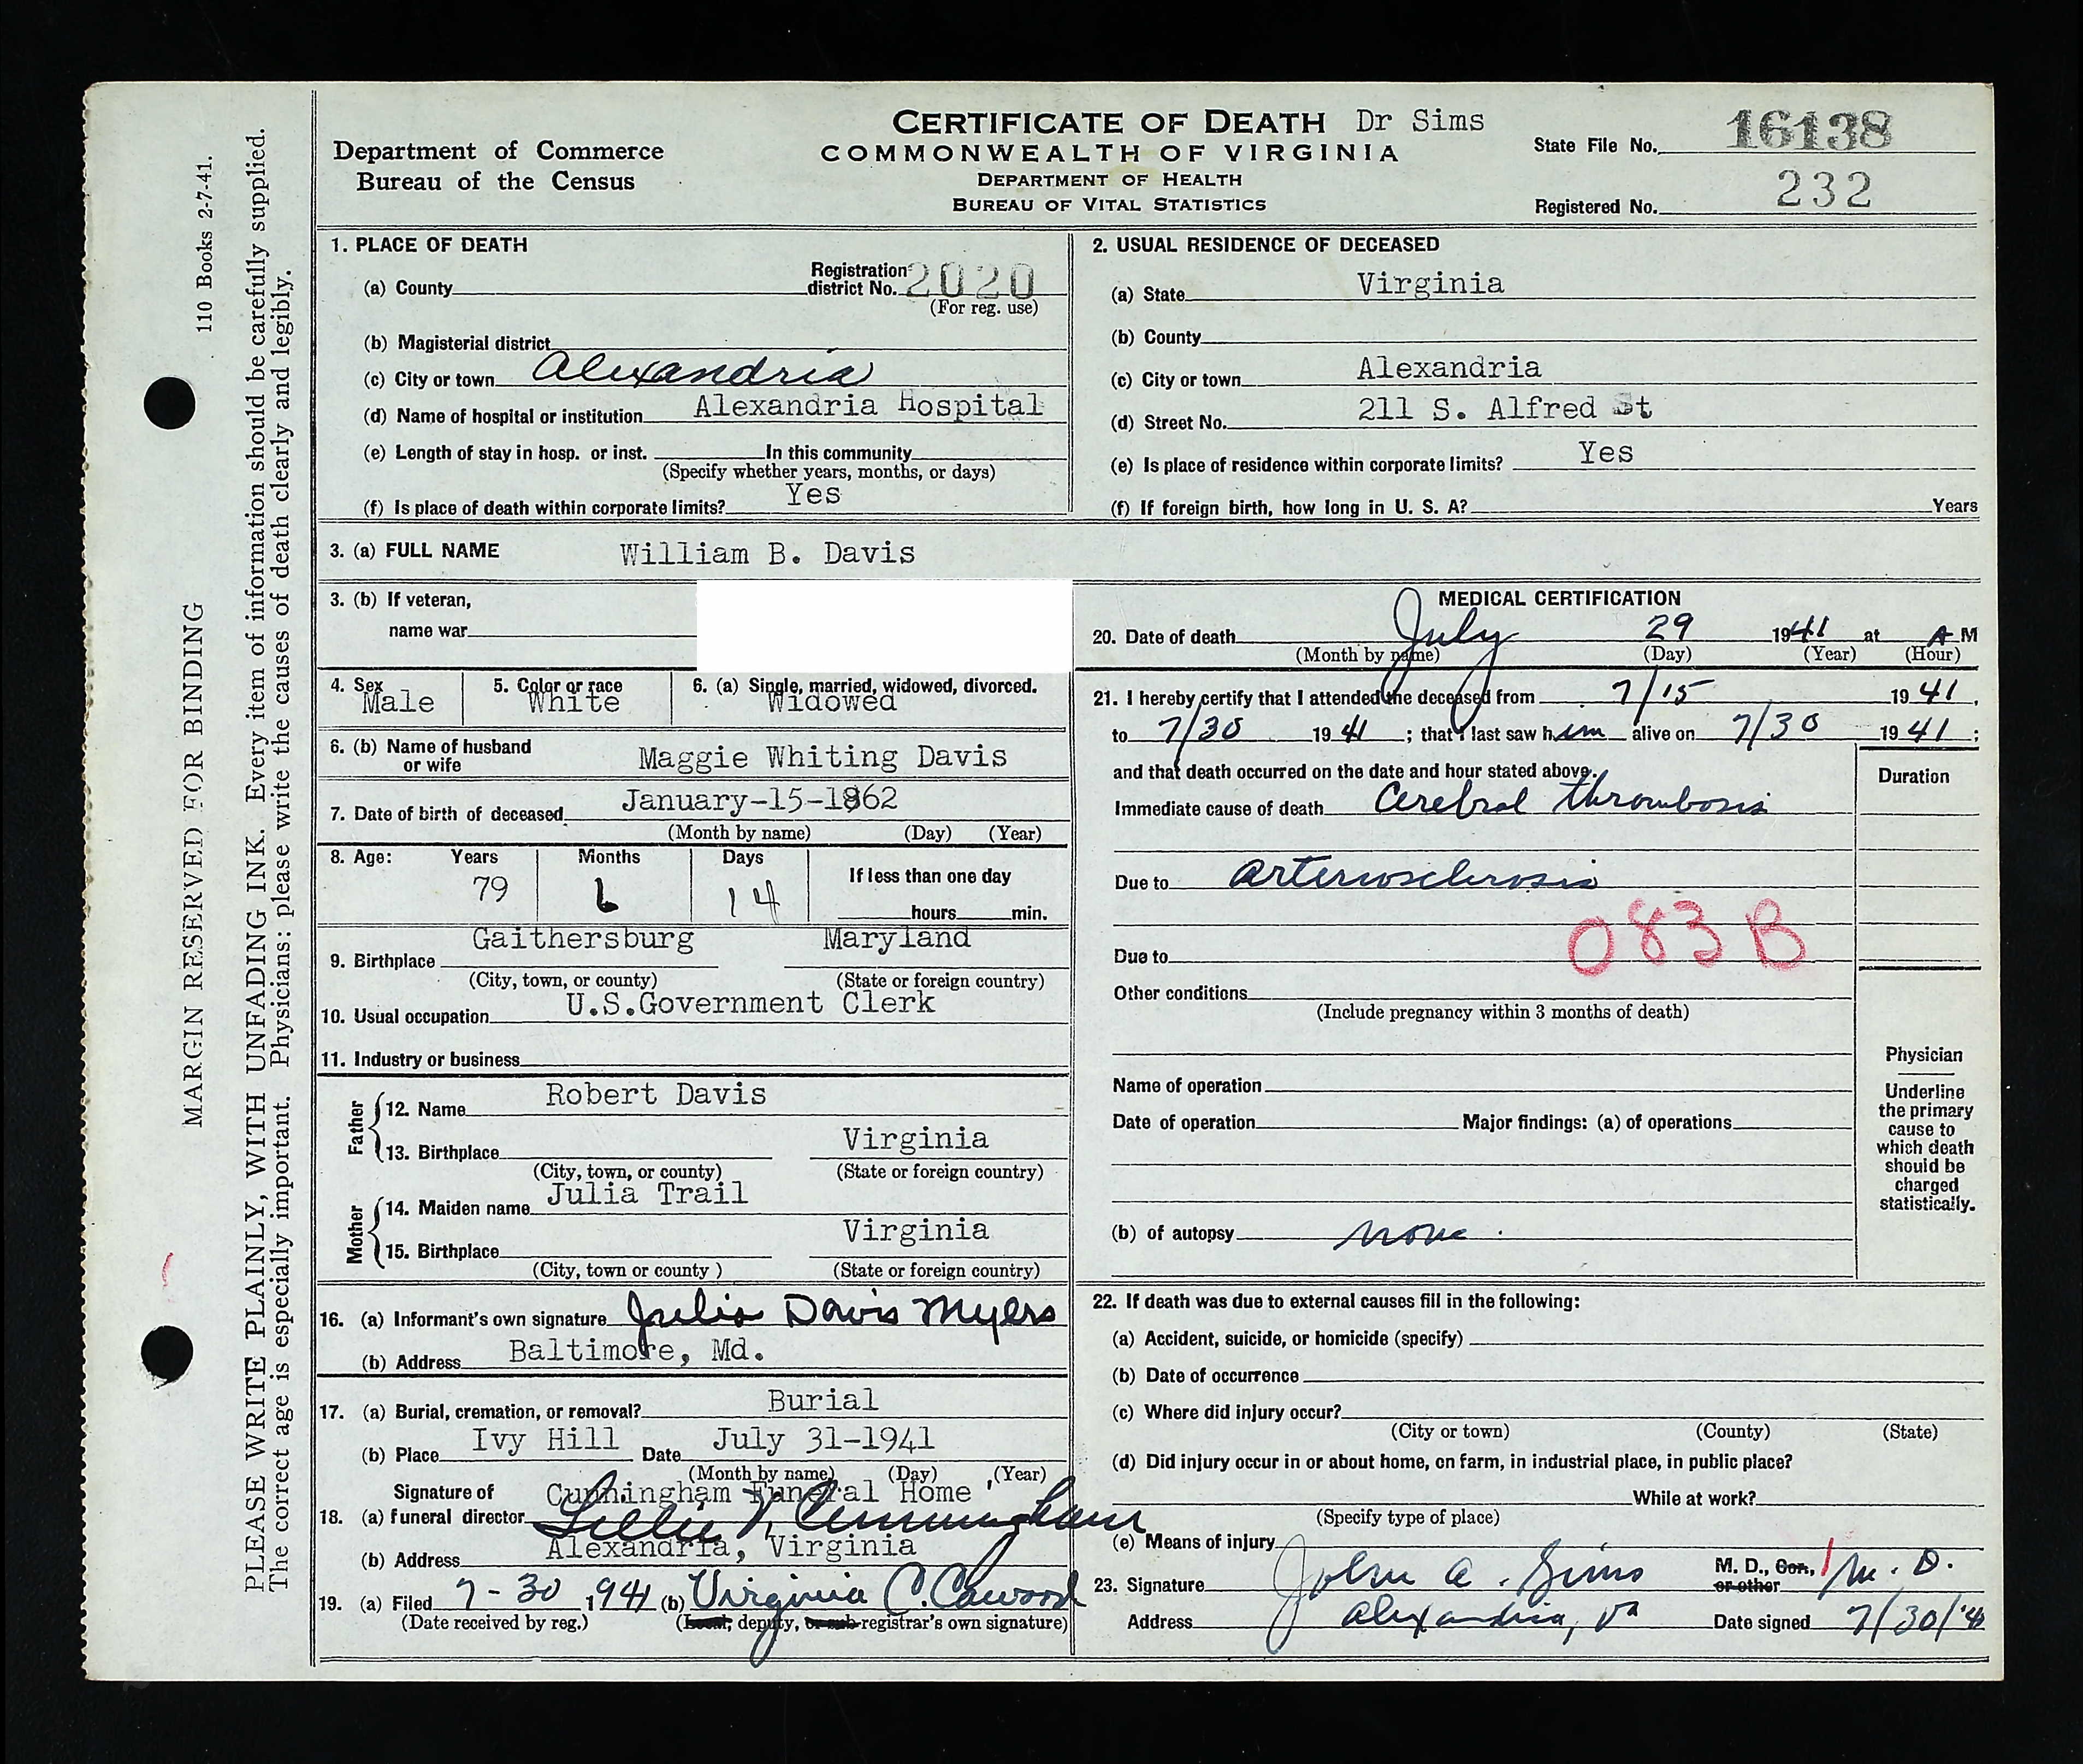 110 Books 2-7-41.
MARGIN RESERVED FOR BINDING
PLEASE WRITE PLAINLY, WITH UNFADING INK. Every item of information should be carefully supplied.
The correct age is especially important. Physicians: please write the causes of death clearly and legibly.
Department of Commerce
Bureau of the Census
CERTIFICATE OF DEATH Dr Sims
COMMONWEALTH OF VIRGINIA
DEPARTMENT OF HEALTH
BUREAU OF VITAL STATISTICS
State File No. 16138
Registered No. 232
1. PLACE OF DEATH
(a) County Registration district No. 2020
(For reg. use)
(b) Magisterial district
(c) City or town Alexandria
(d) Name of hospital or institution Alexandria Hospital
(e) Length of stay in hosp. or inst. In this community
(Specify whether years, months, or days)
(f) Is place of death within corporate limits? Yes
2. USUAL RESIDENCE OF DECEASED
(a) State Virginia
(b) County
(c) City or town Alexandria
(d) Street No. 211 S. Alfred St
(e) Is place of residence within corporate limits? Yes
(f) If foreign birth, how long in U. S. A? Years
3. (a) FULL NAME William B. Davis
3. (b) If veteran,
name war
4. Sex Male
5. Color or race White
6. (a) Single, married, widowed, divorced. Widowed
6. (b) Name of husband or wife Maggie Whiting Davis
7. Date of birth of deceased January-15-1862
(Month by name) (Day) (Year)
8. Age: Years Months Days If less than one day
79 6 14 hours min.
9. Birthplace Gaithersburg Maryland
(City, town, or county) (State or foreign country)
10. Usual occupation U.S.Government Clerk
11. Industry or business
Father
12. Name Robert Davis
13. Birthplace Virginia
(City, town, or county) (State or foreign country)
Mother
14. Maiden name Julia Trail
15. Birthplace Virginia
(City, town or county ) (State or foreign country)
16. (a) Informant's own signature Julia Davis Myers
(b) Address Baltimore, Md.
17. (a) Burial, cremation, or removal? Burial
(b) Place Ivy Hill Date July 31-1941
(Month by name) (Day) (Year)
Signature of Cunningham Funeral Home
18. (a) funeral director Lillie V. Cunningham
(b) Address Alexandria, Virginia
19. (a) Filed 7-30 1941 (b) Virginia C. Cawood
(Date received by reg.) (Local, deputy, or sub-registrar's own signature)
MEDICAL CERTIFICATION
20. Date of death July 29 1941 at A M
(Month by name) (Day) (Year) (Hour)
21. I hereby certify that I attended the deceased from 7/15 1941,
to 7/30 1941 ; that I last saw him alive on 7/30 1941 ;
and that death occurred on the date and hour stated above.
Duration
Immediate cause of death Cerebral thrombosis
Due to Arteriosclerosis
083 B
Due to
Other conditions
(Include pregnancy within 3 months of death)
Name of operation
Date of operation Major findings: (a) of operations
(b) of autopsy none.
Physician
Underline
the primary
cause to
which death
should be
charged
statistically.
22. If death was due to external causes fill in the following:
(a) Accident, suicide, or homicide (specify)
(b) Date of occurrence
(c) Where did injury occur?
(City or town) (County) (State)
(d) Did injury occur in or about home, on farm, in industrial place, in public place?
While at work?
(Specify type of place)
(e) Means of injury
23. Signature John A. Sims M. D., Cor., or other M. D.
Address Alexandria, Va Date signed 7/30/'41